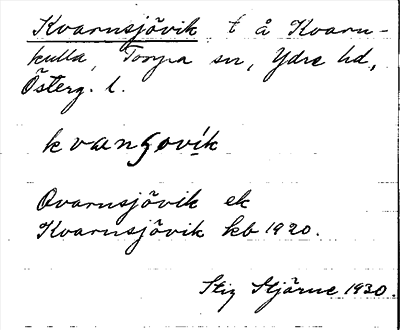 Kvarnsjövik t å Kvarn-
kulla, Torpa sn, Ydre hd,
Österg. l.
kvanʃovik
Qvarnsjövik ek
Kvarnsjövik kb 1920.
Stig Stjärne 1930.